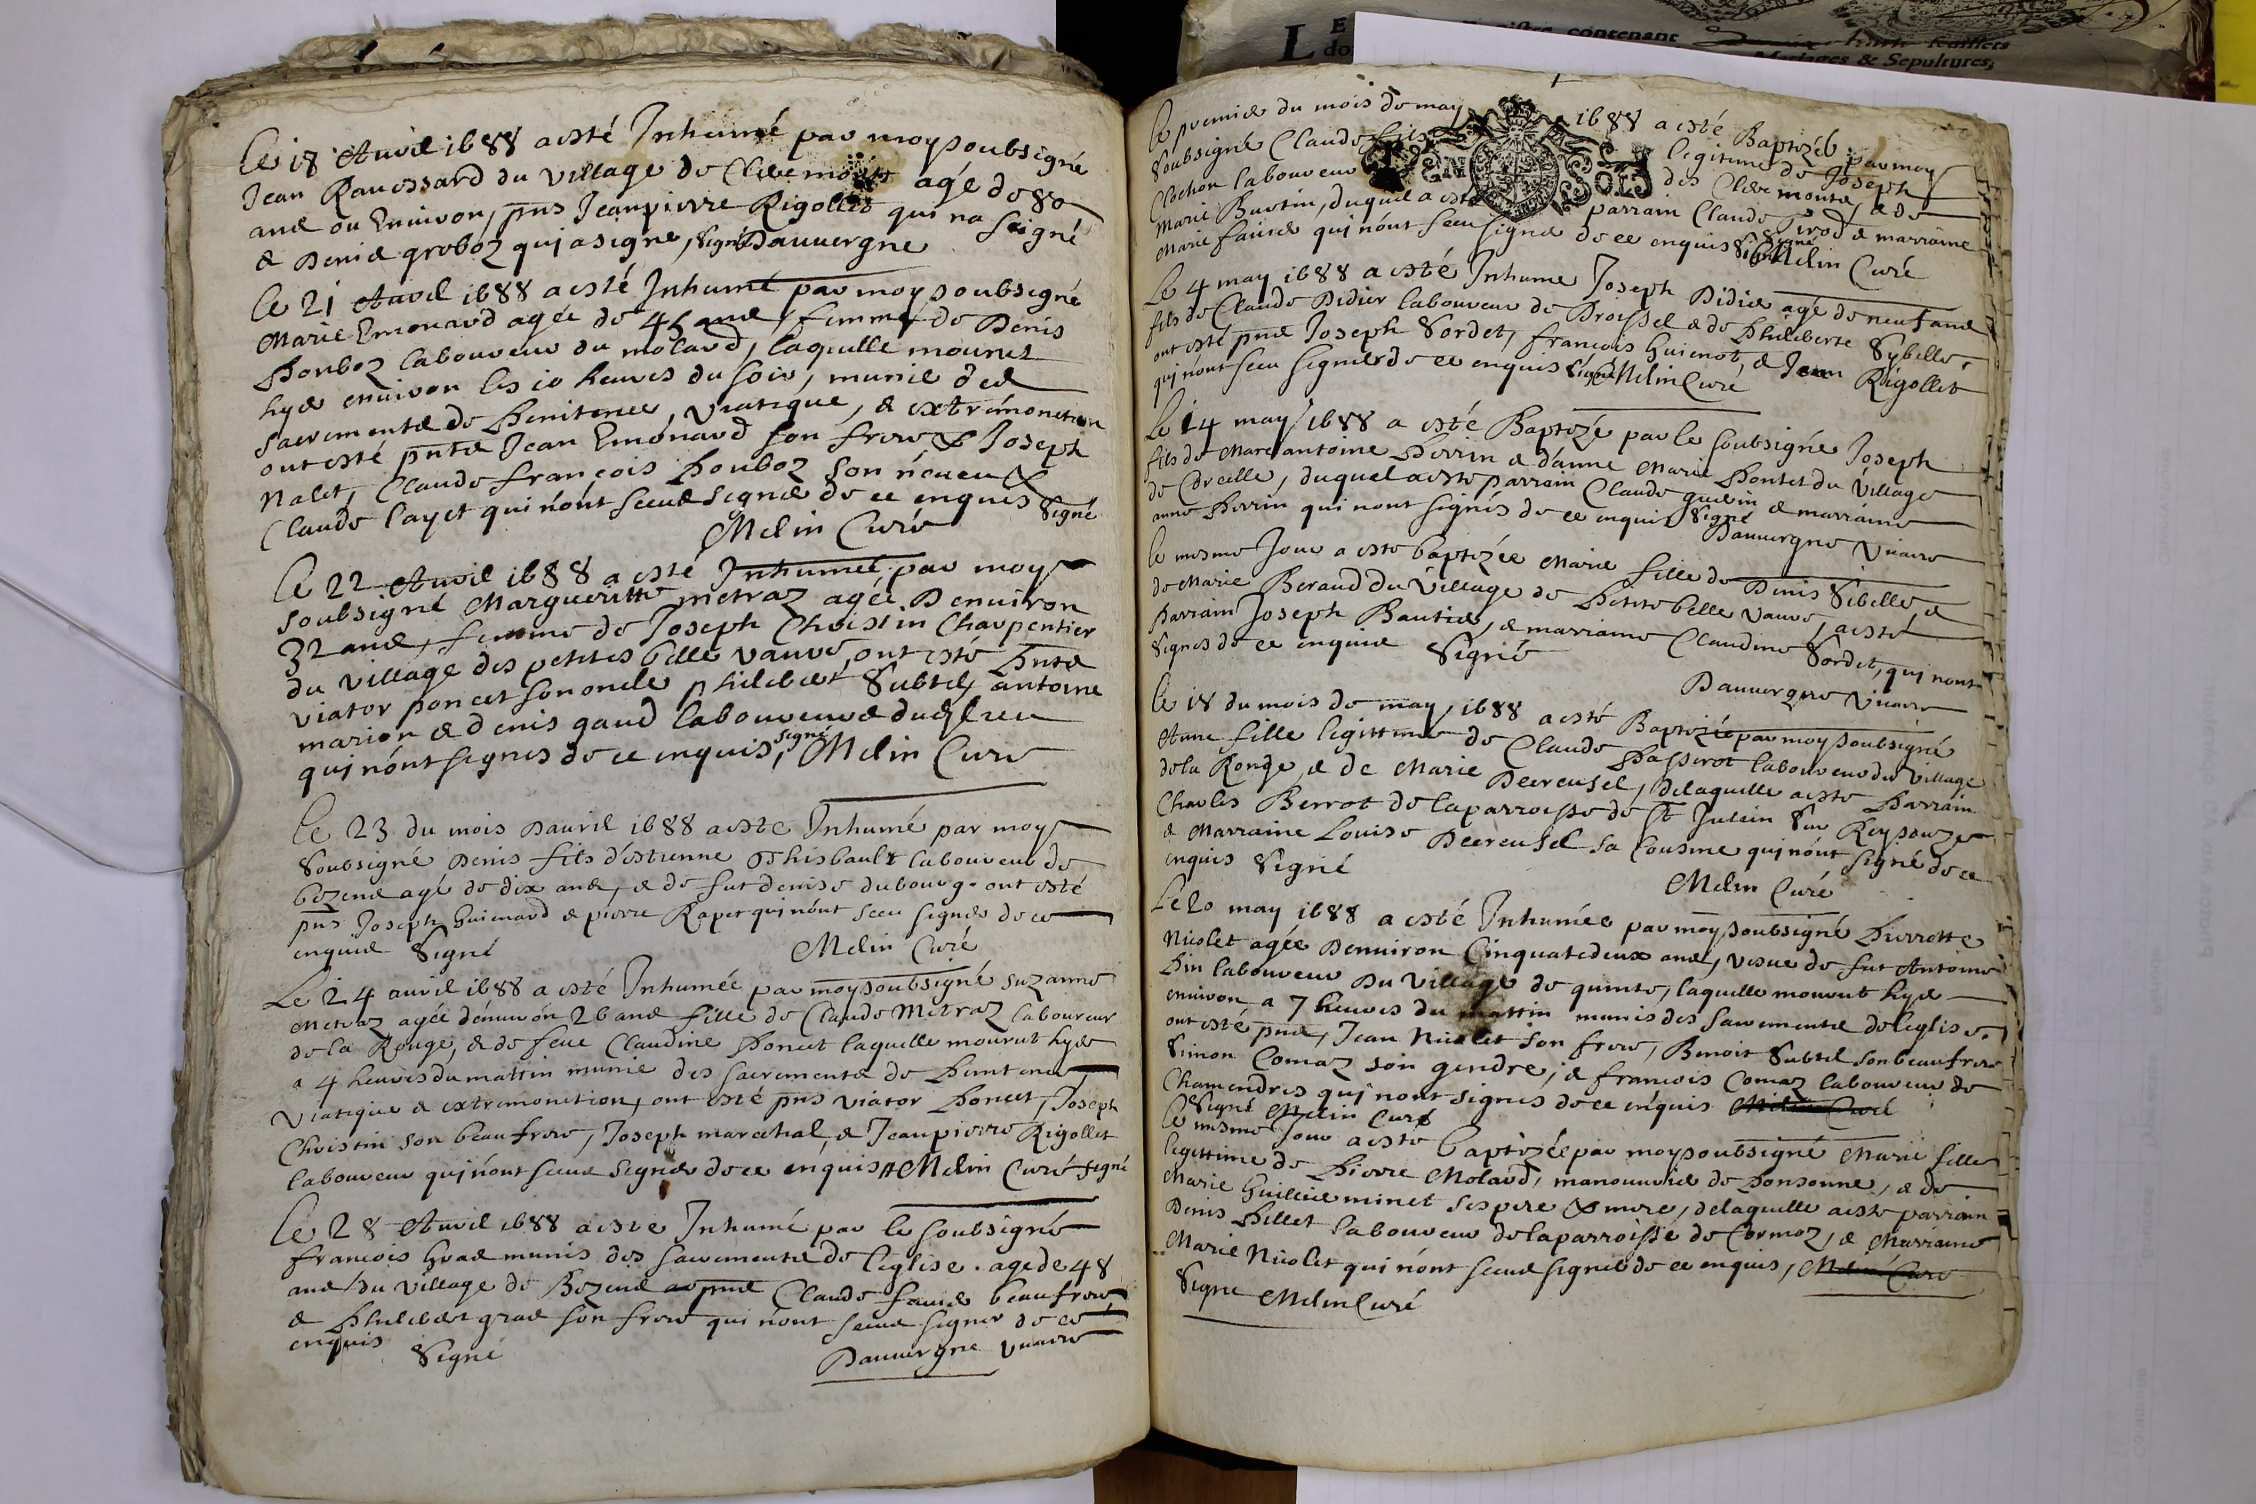 Le 18 Auril 1688 a esté Inhumé par moy soubsigné
Jean Rauessard du village de Cleremonts agé de 80
ans ou Enuiron, pns Jeanpierre Rigollet qui na signé
& Denis groboz qui a signe, signé Dauuergne
Le 21 Auril 1688 a esté Inhumé par moy soubsigné
Marie Emonard agée de 45 ans, femme de Denis
Ponboz laboureur du molard, laquelle mourut
hyer enuiron les 10 heures du soir, munie des
sacrements de Penitence, viatique, & extrémonction
ont esté pnts Jean Emonard son frere & Joseph
Nalet, Claude françois Ponboz son neueu &
Claude layet qui n'ont sceus signer de ce enquis signé
Melin Curé
Le 22 Auril 1688 a esté Inhumée par moy
soubsigné Margueritte metraz agée D'enuiron
32 ans, femme de Joseph Christin Charpentier
du village des petites belle vaure, ont esté Pnts
viator poncet son oncle philibert Subtil, antoine
marion & denis gaud laboureurs dud lieu
qui n'ont signes de ce enquis, signé Melin Cure
Le 23 du mois Dauril 1688 a este Inhumé par moy
Soubsigné Denis fils d'estienne Thisbault laboureur de
bezens agé de dix ans, & de fut denise dubourg. ont esté
pns Joseph Guienard & pierre Rapet qui n'ont sceu signer de ce
enquis Signé Melin Curé
Le 24 auril 1688 a esté Inhumée par moy soubsigné suzanne
Metraz agée d'enuiron 26 ans fille de Claude Metraz laboureur
de la Rouge, & de feue Claudine Poncet laquelle mourut hyer
a 4 heures du mattin munie des sacrements de Penitence
viatique & extremonction, ont esté pns viator Poncet, Joseph
Christin son beau frere, Joseph marechal & Jeanpierre Rigollet
laboureur qui n'ont sceus signer de ce enquis Melin Curé signé
Le 28 Auril 1688 a este Inhumé par le soubsigné
francois Gras munis des sacements de l'eglise. age de 48
ans du village de Bezens Claude beaufrere
& Philibert gras son frere qui n'ont sceus signer de ce
enquis Signé Dauuergne vicaire
Le premier du mois de may 1688 a esté Baptizé par moy
Soubsigné Claude fils legitime de Joseph
Clochon laboureur des Cleremonts, & de
Marie Burtin, duquel a esté parrain Claude Pirod & marraine
Marie faure qui n'ont sceu signer de ce enquis Signé Melin Curé
Le 4 may 1688 a esté Inhume Joseph Didier agé de neuf ans
fils de Claude Didier laboureur de Broissel & de Philiberte Sybelle.
ont esté pns Joseph Sordet, francois Guienot, & Jean Rigollet
qui n'ont sceu signer de ce enquis Signé Melin Curé
Le 14 may 1688 a esté Baptizé par le soubsignée Joseph
fils de Marc antoine Perrin & d'anne Marie Pontet du village
de Corcelle, duquel a este parrain Claude guerin & marraine
anne Perrin qui n'ont signés de ce enquis Signé Dauuergne vicaire
Le mesme Jour a este baptizée Marie fille de Denis Sibelle, &
de Marie Beraud du village de Petite belle vaure, a esté
Parrain Joseph Bautier, & marraine Claudine Sordet, qui n'ont
signes de ce enquis Signé Dauuergne vicaire
Le 18 du mois de may 1688 a esté Baptizée par moy soubsigné
Anne fille legittime de Claude Passerot laboureur du village
de la Rouge & de Marie Decreusel, delaquelle a este Parrain
Charles Berrot de la parroisse de St Julein Sur Reysouze
& Marraine Louise Decreusel sa Cousine qui n'ont signé de ce
enquis Signé Melin Curé
Le 20 may 1688 a esté Inhumée par moy soubsigné Pierrette
Nicolet agée Denuiron Cinquatedeux ans, vesue de fut Antoine
Pin laboureur Du village de quinte, laquelle mourut hyer
enuiron a 7 heures du mattin munis des sacrements de leglise.
ont esté pns, Jean Nicolet son frere, Benoit Subtil son beaufrere
Simon Comaz son gendre, & francois Comaz laboureur de
Chamendres qui n'ont signes de ce enquis Melin Curé
Signé Melin Curé
Le mesme Jour a este baptizée par moy soubsigné Marie fille
legittime de Pierre Molard, manouurier de Ponsonne, & de
Marie Guillieminet ses pere & mere, delaquelle a este parrain
Denis Pillet laboureur de la parroisse de Cormoz, & Marraine
Marie Nicolet qui n'ont sceus signer de ce enquis, Melin Cure
Signe Melin Curé